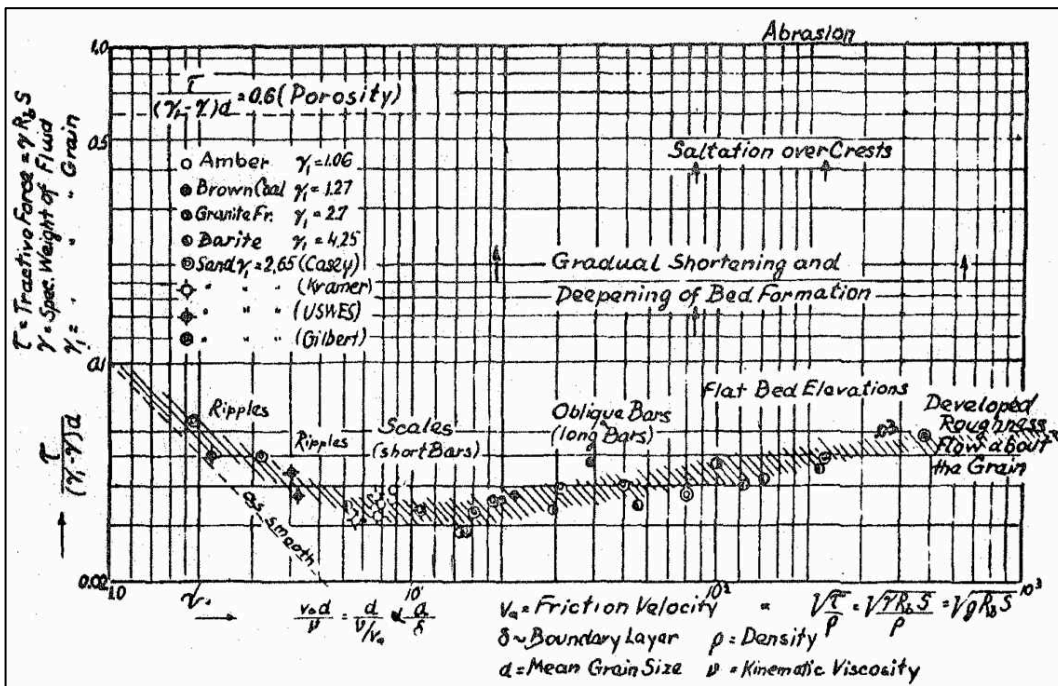 Abrasion
1.0
τ/(γ₁-γ)d = 0.6 (Porosity)
0.5
Amber γ₁=1.06
Brown Coal γ₁=1.27
Granite Fr. γ₁=2.7
Barite γ₁=4.25
Sand γ₁=2.65 (Casey)
" " " (Kramer)
" " " (USWES)
" " " (Gilbert)
Saltation over Crests
Gradual Shortening and
Deepening of Bed Formation
τ = Tractive Force = γ R_b S
γ = Spec. Weight of Fluid
γ₁ = " " " Grain
0.1
Flat Bed Elevations
Ripples
Ripples
Scales
(short Bars)
Oblique Bars
(long Bars)
Developed
Roughness
Flow about
the Grain
τ/(γ₁-γ)d
smooth
0.02
1.0
10'
10²
10³
v* d/ν = d/ν/v* ∝ d/δ
v* = Friction Velocity = √τ/ρ = √γR_b S/ρ = √gR_b S
δ ~ Boundary Layer ρ = Density
d = Mean Grain Size ν = Kinematic Viscosity